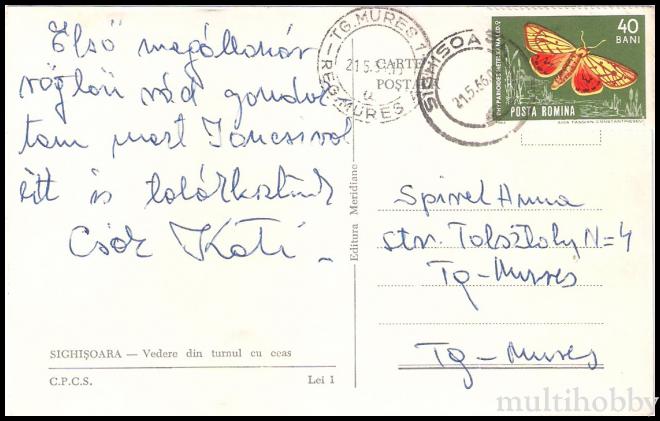 Első megállónár
röglön rád gondol
tam mert Jancsival
itt is találkoztunk
Csók Kati
TG. MUREȘ 1
21.5.
REG. MUREȘ
CARTE
POȘTALĂ
SIGHIȘOARA
21.5.66
40
BANI
POSTA ROMINA
AIDA TASGIAN CONSTANTINESCU
Editura Meridiane
Spirel Anna
str. Tolsztoly N=4
Tg-Mureș
Tg-Mureș
SIGHIȘOARA — Vedere din turnul cu ceas
C.P.C.S. Lei 1
multihobby